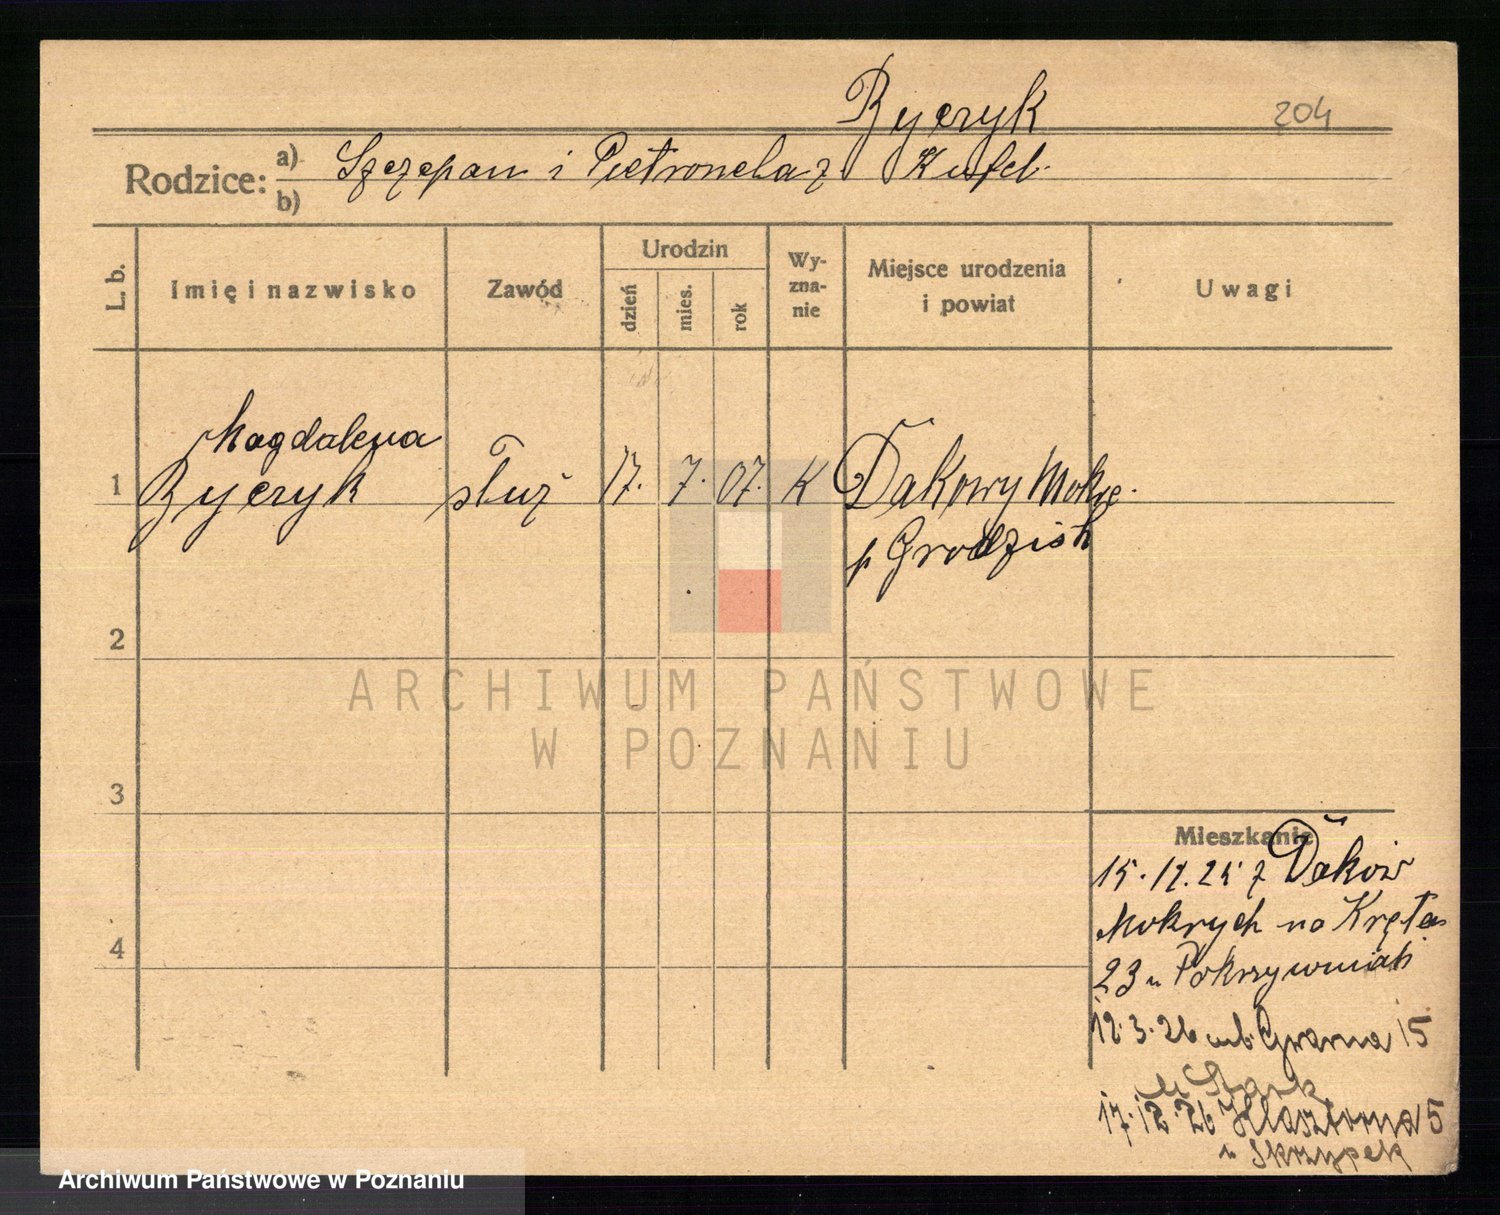 Byczyk
204
Rodzice: a) Szczepan i Pietronela z Kufel.
b)
L. b.
Imię i nazwisko
Zawód
Urodzin
dzień
mies.
rok
Wy-
zna-
nie
Miejsce urodzenia
i powiat
Uwagi
Magdalena
1 Byczyk służ 17. 7. 07. K Dakowy Mokre.
p Grodzisk
2
3
4
Mieszkanie
15.12.25 z Daków
Mokrych na Kręta
23 u Pokrzywniak
12.3.26 Grarna 15
u Stark
17.12.26 Klasztorna 5
u Skrzypek
ARCHIWUM PAŃSTWOWE
W POZNANIU
Archiwum Państwowe w Poznaniu